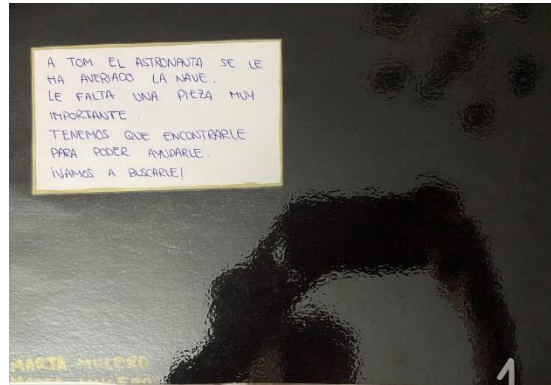 A TOM EL ASTRONAUTA SE LE
HA AVERIADO LA NAVE.
LE FALTA UNA PIEZA MUY
IMPORTANTE.
TENEMOS QUE ENCONTRARLE
PARA PODER AYUDARLE.
¡VAMOS A BUSCARLE!
MARTA MULERO
1